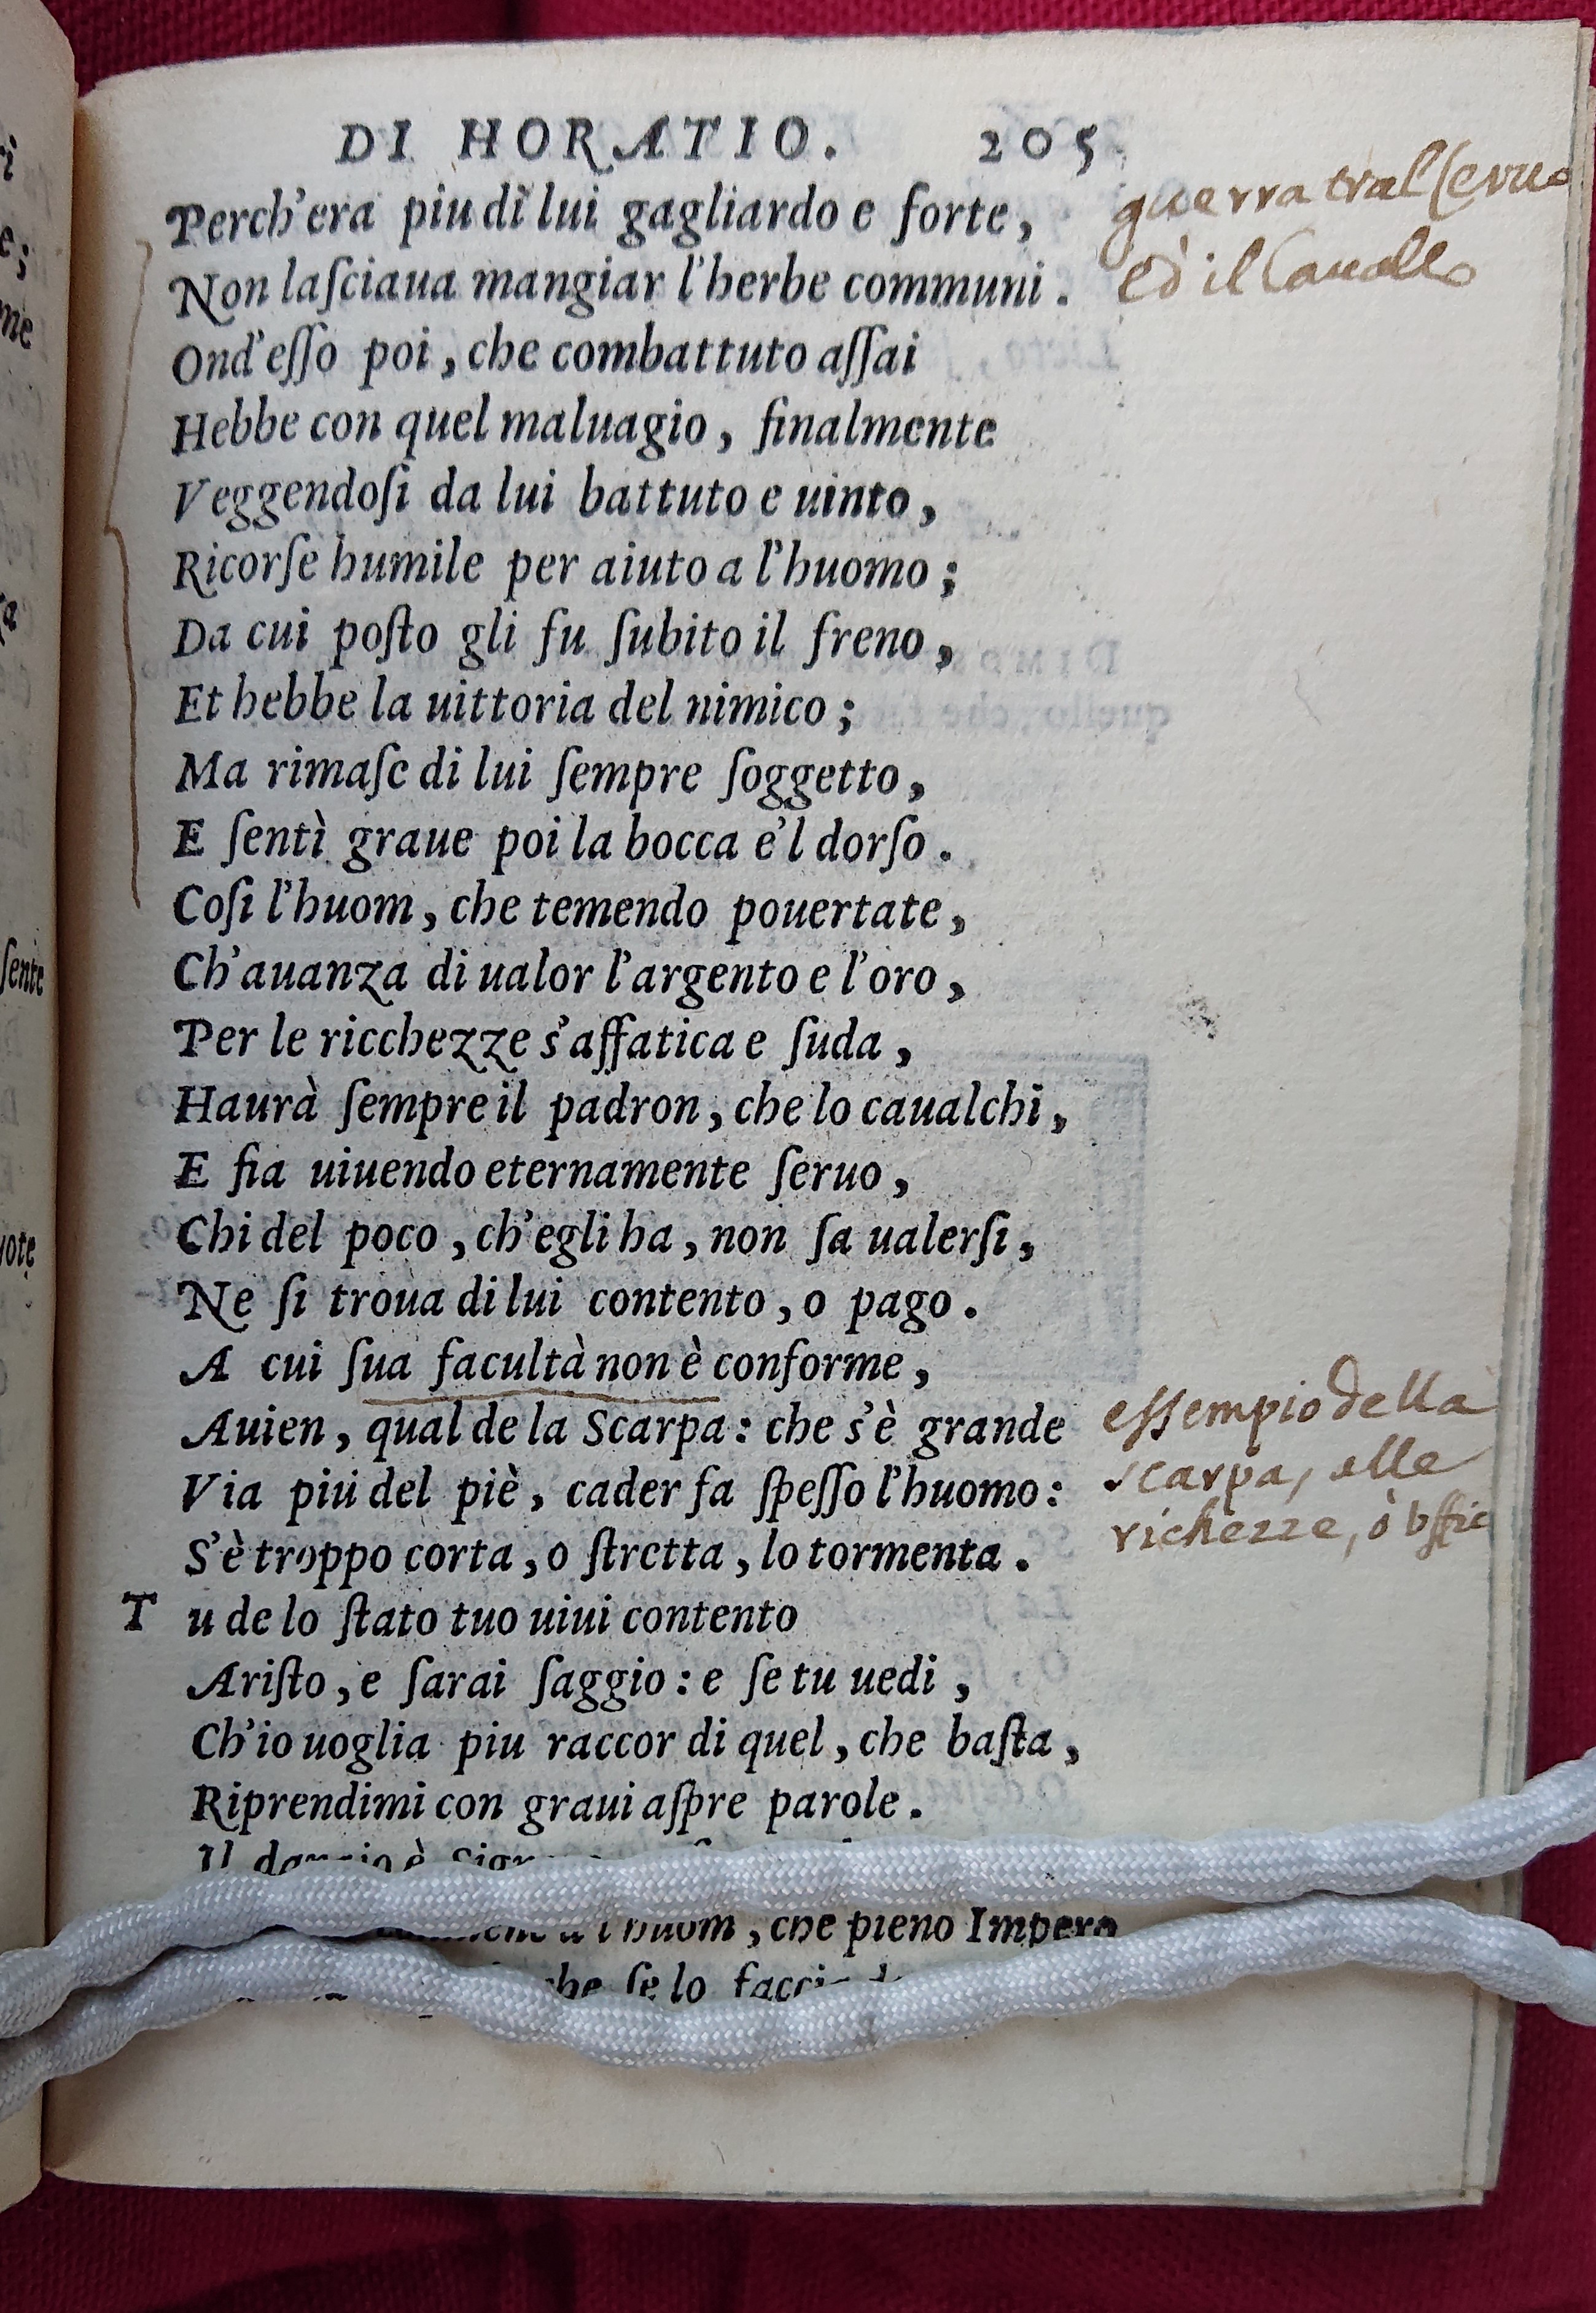 DI HORATIO. 205
Perch'era piu di lui gagliardo e forte,
Non laſciaua mangiar l'herbe communi.
Ond'eſſo poi, che combattuto aſſai
Hebbe con quel maluagio, finalmente
Veggendoſi da lui battuto e uinto,
Ricorſe humile per aiuto a l'huomo;
Da cui poſto gli fu ſubito il freno,
Et hebbe la uittoria del nimico;
Ma rimaſe di lui ſempre ſoggetto,
E ſentì graue poi la bocca e'l dorſo.
Coſi l'huom, che temendo pouertate,
Ch'auanza di ualor l'argento e l'oro,
Per le ricchezze s'affatica e ſuda,
Haurà ſempre il padron, che lo caualchi,
E fia uiuendo eternamente ſeruo,
Chi del poco, ch'egli ha, non ſa ualerſi,
Ne ſi troua di lui contento, o pago.
A cui ſua facultà non è conforme,
Auien, qual de la Scarpa: che s'è grande
Via piú del piè, cader fa ſpeſſo l'huomo:
S'è troppo corta, o ſtretta, lo tormenta.
Tu de lo ſtato tuo uiui contento
Ariſto, e ſarai ſaggio: e ſe tu uedi,
Ch'io uoglia piu raccor di quel, che baſta,
Riprendimi con graui aſpre parole.
Il
l'huom, che pieno Impero
che ſe lo
guerra tral Ceruo
ed il Cauallo
eſſempio della
scarpa, alle
richezze, ò
ſente